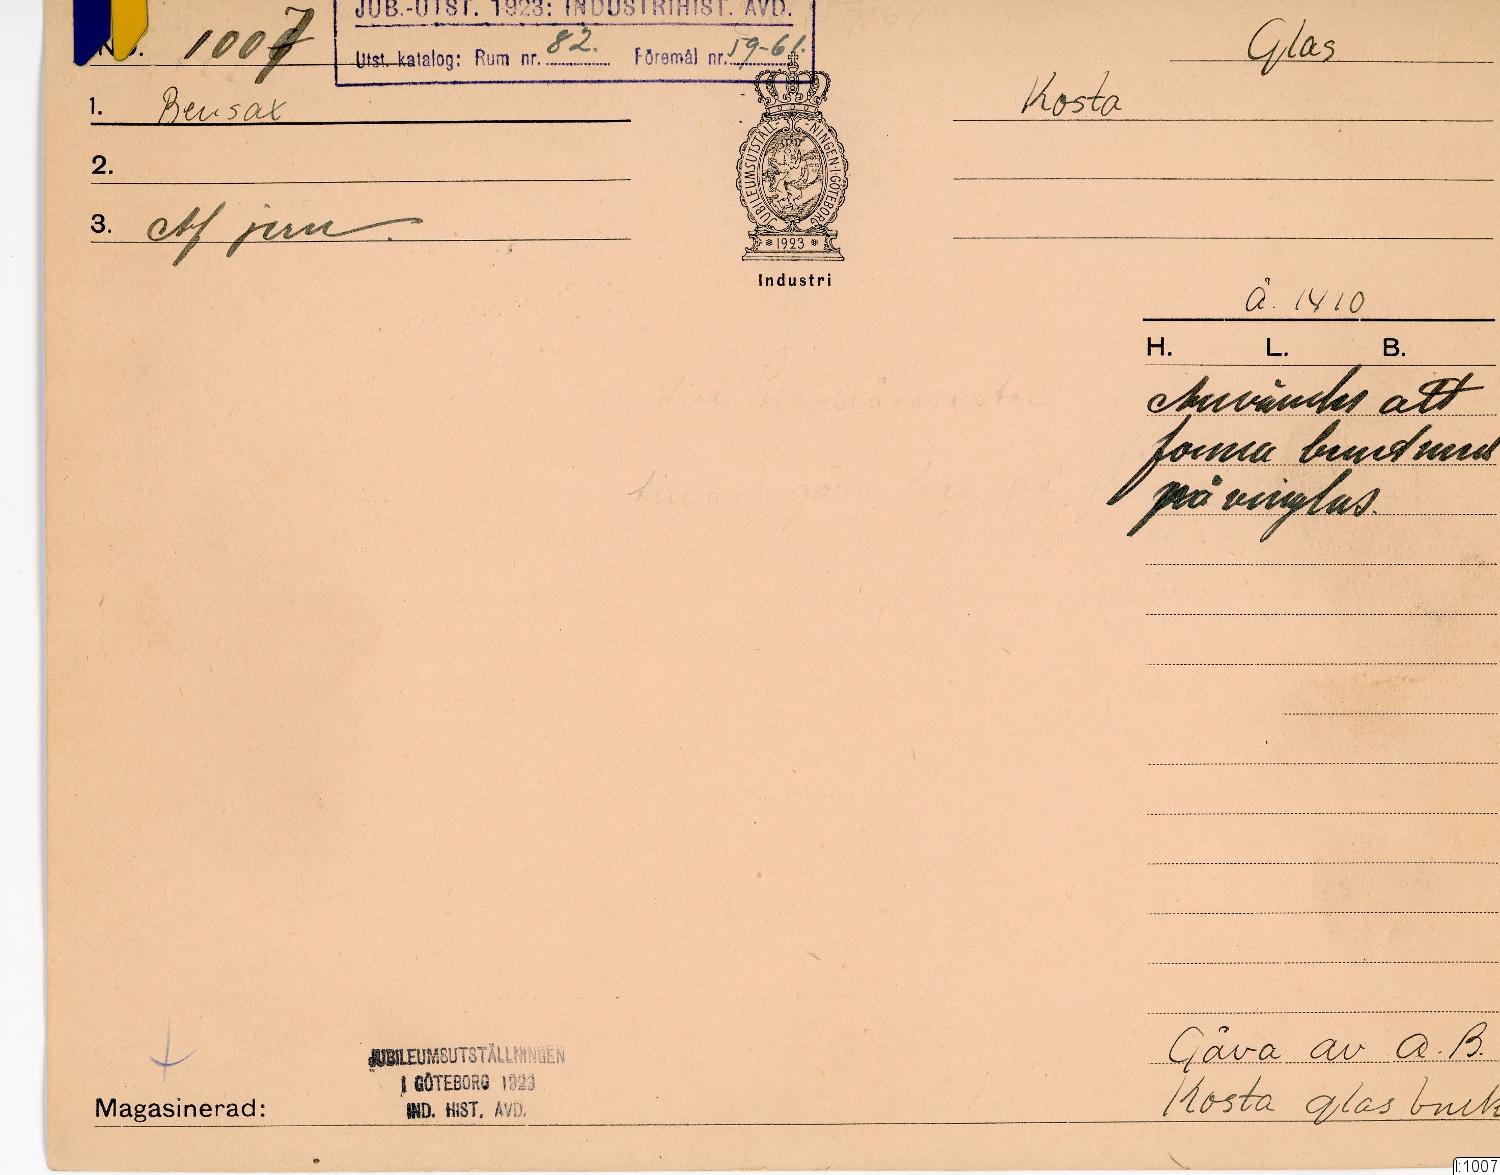 JUB.-UTST. 1923: INDUSTRIHIST. AVD.
No. 1007
Utst. katalog: Rum nr. 82. Föremål nr. 59-61.
Glas
1. Bensax
Kosta
2.
3. Af jern
JUBILEUMSUTSTÄLLNINGEN I GÖTEBORG
1923
Industri
Å. 1410
H. L. B.
Användes att
forma
på vinglas.
JUBILEUMSUTSTÄLLNINGEN
I GÖTEBORG 1923
IND. HIST. AVD.
Magasinerad:
Gåva av A.B.
Kosta glasbruk
I:1007